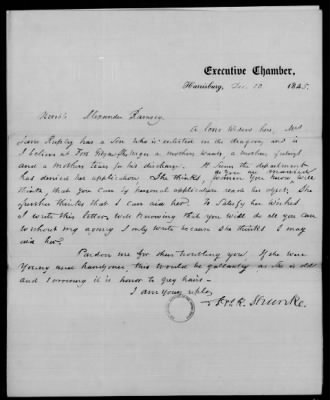 Executive Chamber,
Harrisburg, Dec. 10 1845.
Alexander Ramsey
A poor widow here, Mrs
Jane has a Son who is enlisted in the dragoons, and is
I believe at Fort urges a mothers wants, a mothers
and a mothers tears for his discharge. It seems the department
has denied her application. She thinks, women you know, will
as you are married
think, that you can by personal application reach her object. She
further thinks that I can aid her. To Satisfy her wishes
I write this letter, well knowing that you will do all you can
without my agency I only write because she thinks I may
aid her.
Pardon me for thus troubling you. If she were
Young and handsome, this would be gallantry as she is old
and it is honor to grey hairs -
I am Yours
Shunk.